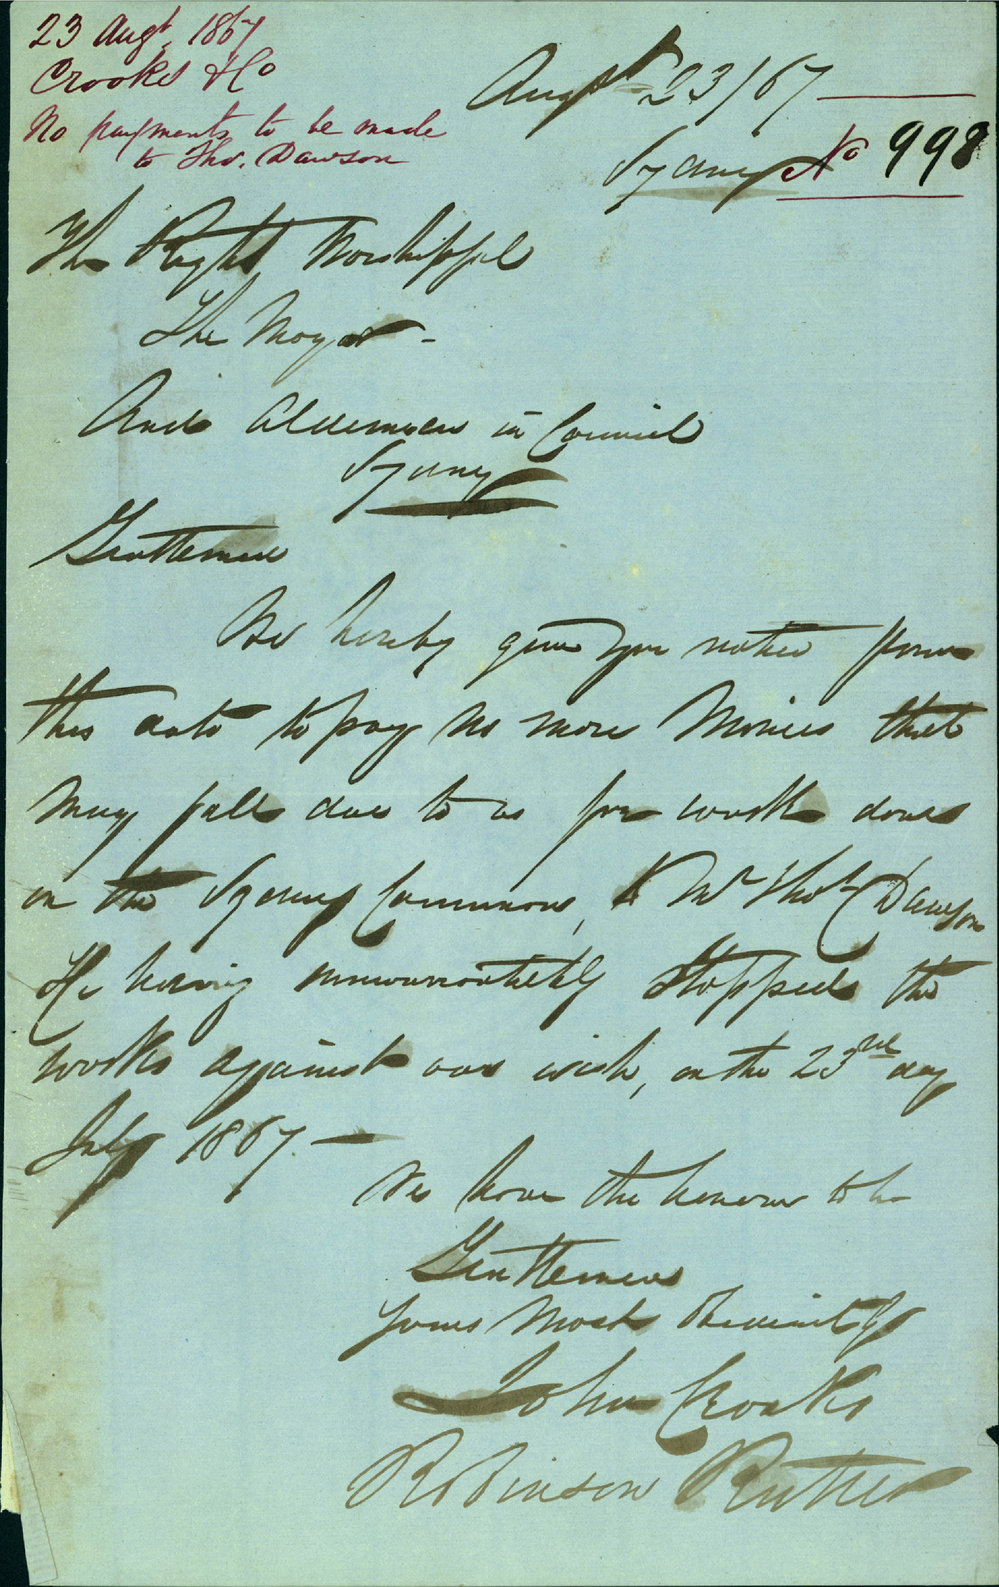 23 Augt. 1867
Crooks & Co
No payments to be made
to Thos. Dawson
Augst 23/67
Sydney
No 998
The Right Worshipful
The Mayor -
And Aldermen in Council
Sydney
Gentlemen
We hereby give you notice from
this date to pay no more Monies that
may fall due to us for work done
on the Sydney Common, to Mr Thos Dawson
He having unwarrantably stopped the
works against our wish, on the 23rd day
July 1867. —
We have the honour to be
Gentlemen
Yours Most Obediently
John Crooks
Robinson Rutter